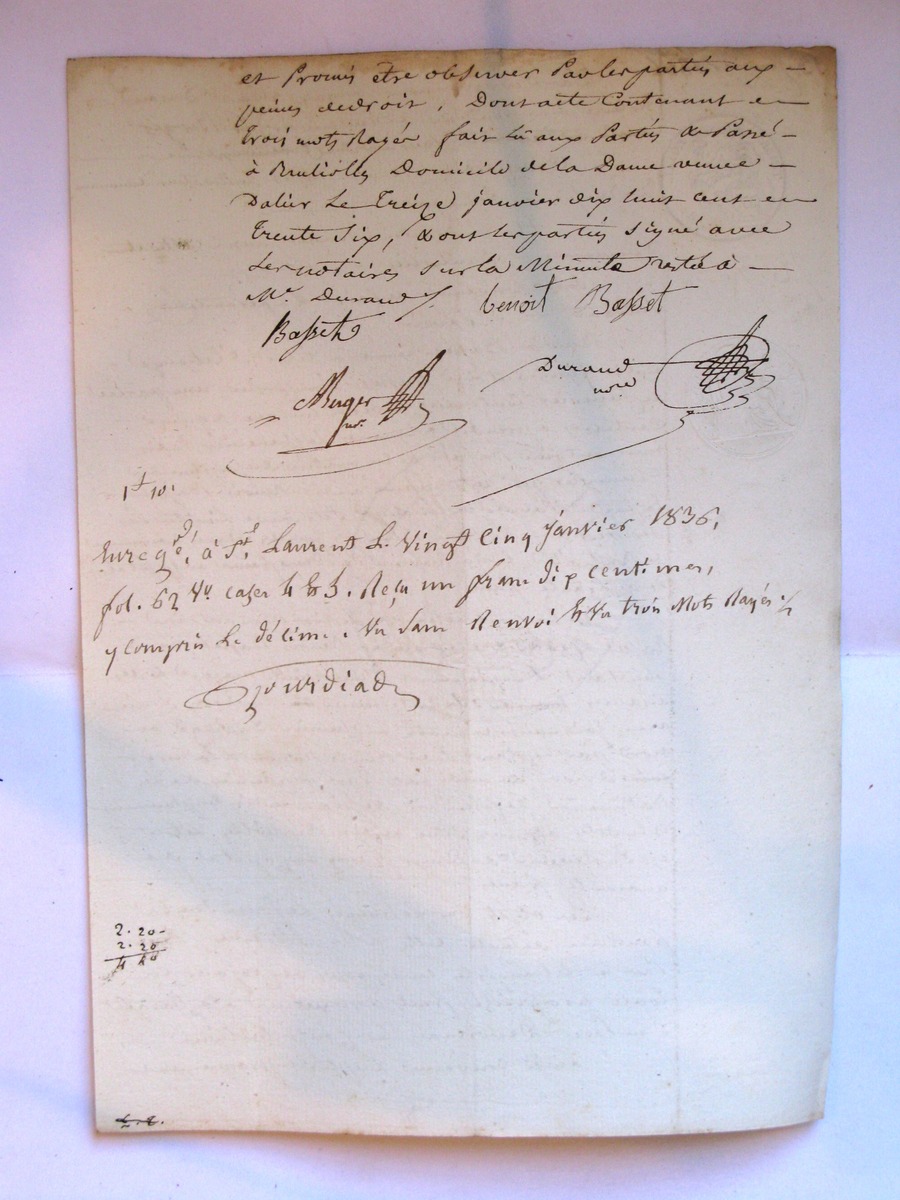 et Promis être observer Par les parties aux
peines de droit, Dont acte Contenant en
trois mots Rayés fait lû aux Parties & Passé
à Domicile de la Dame veuve
Dalier Le Treize janvier dix huit cent en
trente Six, & ont les parties signé avec
Les notaires sur la Minute restée à
Me. Durand /. benoit Basset
Basset
Durand
nore
Berger
nore
1f 10.
Enregé, à St. Laurent Le Vingt Cinq janvier 1836,
fol. 62 Vo cases 4 & 5. Reçu un franc dix centimes,
y compris Le décime. Vu sans Renvoi & Vu trois Mots Rayés ./.
Gourdiad
2. 20-
2. 20
4 40